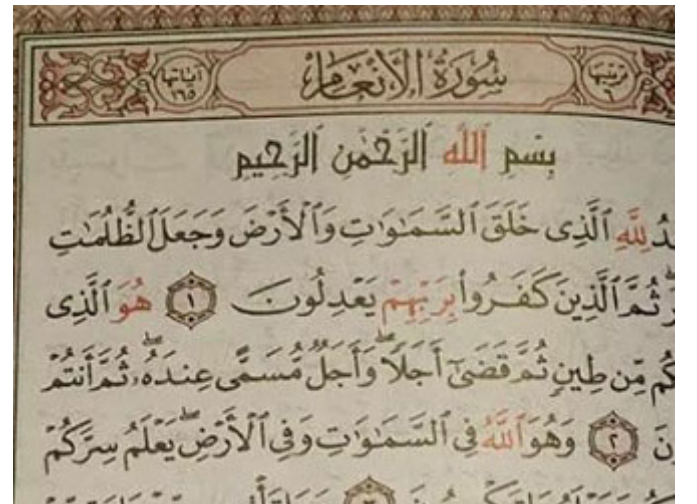 ترتيبها ٦
سُورَةُ الْأَنْعَامِ
آياتها ١٦٥
بِسْمِ ٱللَّهِ ٱلرَّحْمَٰنِ ٱلرَّحِيمِ
لِلَّهِ ٱلَّذِى خَلَقَ ٱلسَّمَٰوَٰتِ وَٱلْأَرْضَ وَجَعَلَ ٱلظُّلُمَٰتِ
ثُمَّ ٱلَّذِينَ كَفَرُوا۟ بِرَبِّهِمْ يَعْدِلُونَ ١ هُوَ ٱلَّذِى
مِّن طِينٍ ثُمَّ قَضَىٰٓ أَجَلًا ۖ وَأَجَلٌ مُّسَمًّى عِندَهُۥ ۖ ثُمَّ أَنتُمْ
٢ وَهُوَ ٱللَّهُ فِى ٱلسَّمَٰوَٰتِ وَفِى ٱلْأَرْضِ ۖ يَعْلَمُ سِرَّكُمْ